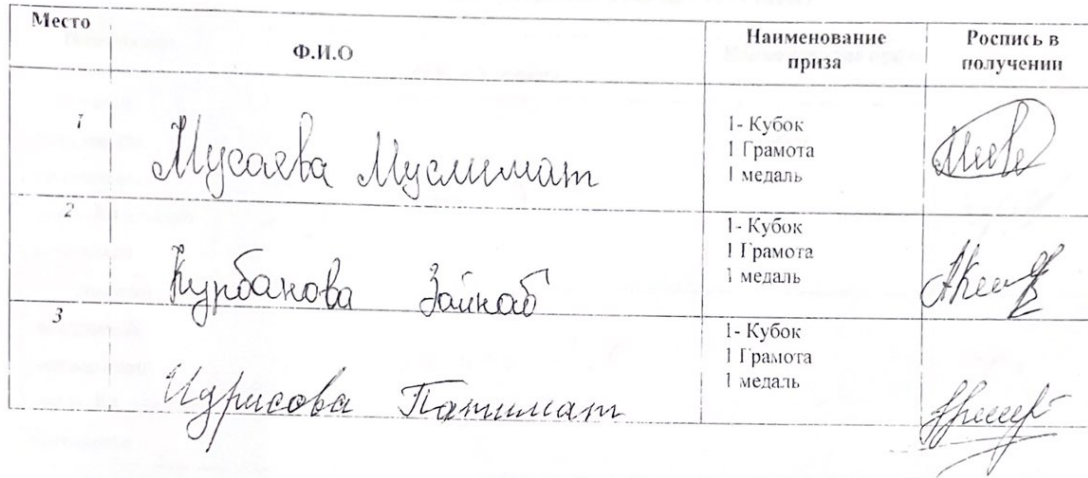 Место Ф.И.О Наименование приза Роспись в получении
1 Мусаева Муслимат 1- Кубок
1 Грамота
1 медаль
2 Курбанова Зайнаб 1- Кубок
1 Грамота
1 медаль
3 Идрисова Патимат 1- Кубок
1 Грамота
1 медаль